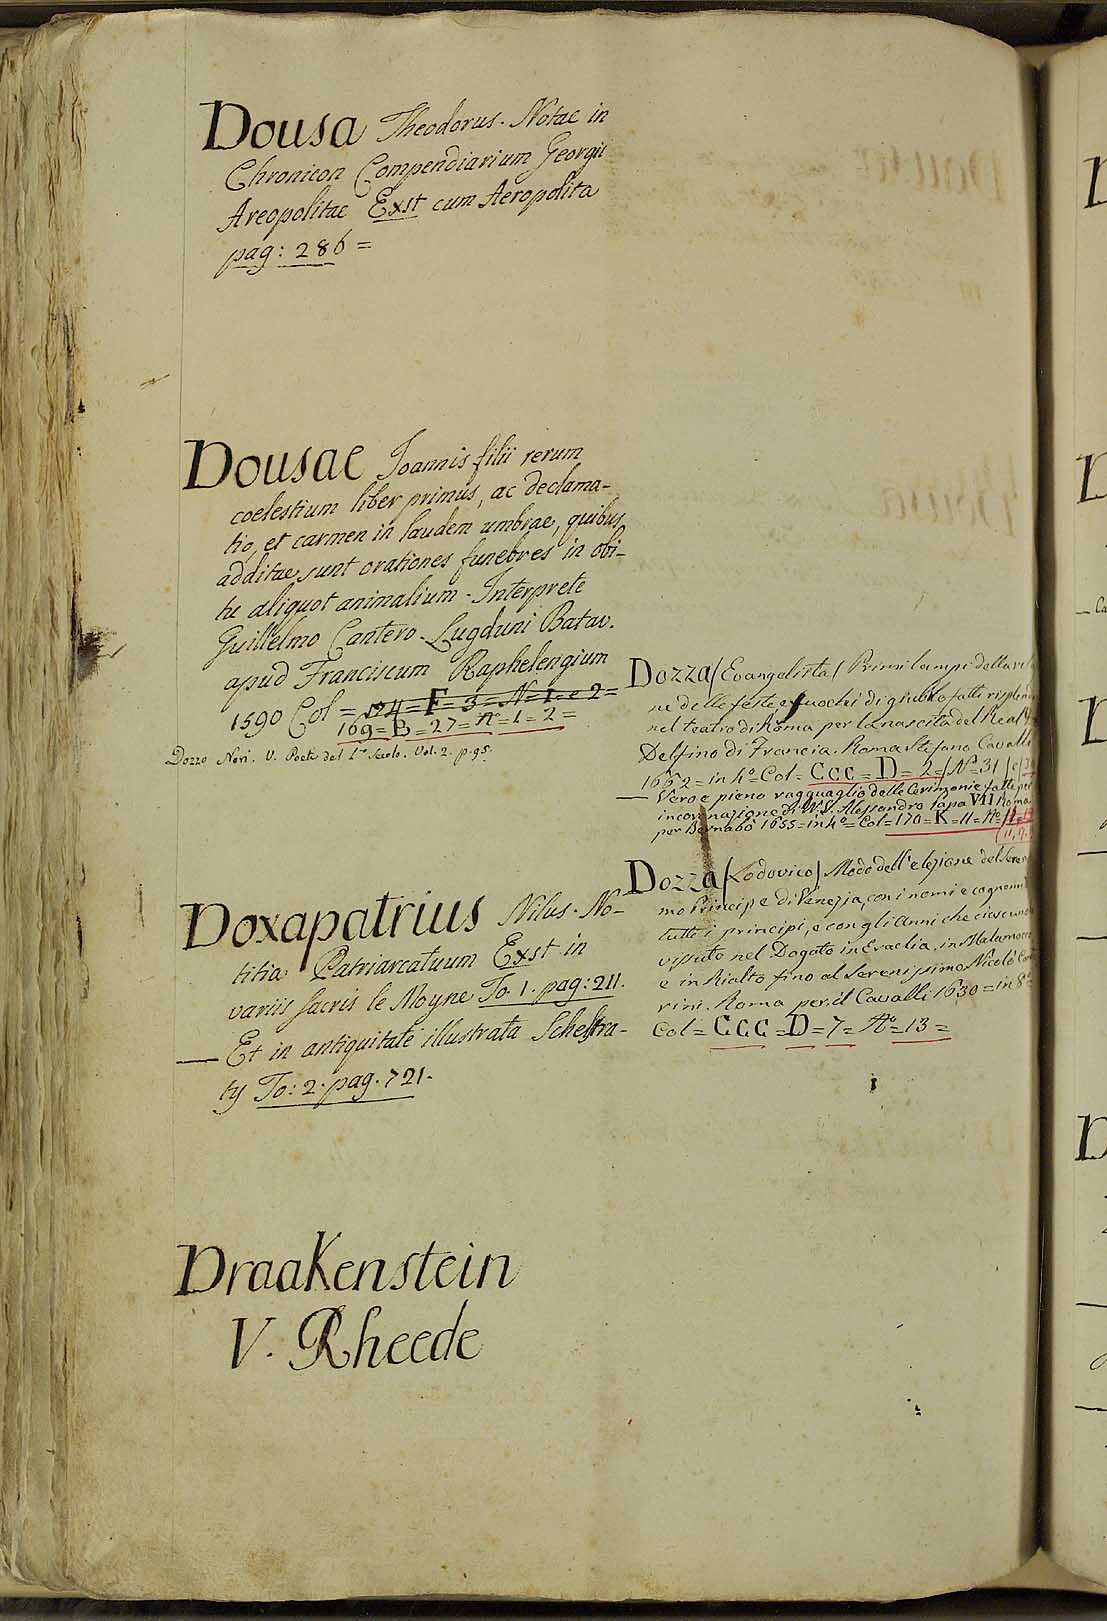 Dousa Theodorus. Notae in
Chronicon Compendiarium Georgii
Areopolitae Exst cum Aeropolita
pag: 286 =
Dousae Joannis filii rerum
coelestium liber primus, ac declama-
tio, et carmen in laudem umbrae, quibus
additae sunt orationes funebres in obi-
tu aliquot animalium. Interprete
Guillelmo Cantero. Lugduni Batav.
apud Franciscum Raphelengium
1590 Col = 124 = F = 3 = N = 1 = e 2 =
169 = B = 27 = No = 1 = 2 =
Dozzo Nori. V. Poete del 1mo Secolo. Vol. 2. p. 95.
Doxapatrius Nilus. No-
titia Patriarcatuum Exst in
variis sacris le Moyne To. 1. pag: 211.
— Et in antiquitate illustrata Schestra-
ty To: 2. pag. 721.
Draakenstein
V. Rheede
Dozza (Evangelista) Primi lampi della
ne delle feste, e fuochi di giubilo fatti
nel teatro di Roma per la nascita del Real
Delfino di Francia. Roma Stefano Cavalli
1662 = in 4o = Col = CCC = D = 2 = (No = 31)
— Vero e pieno ragguaglio delle Cerimonie fatte per
incoronazione di N.S. Alessandro Papa VII Roma
per Bernabò 1655 = in 4o = Col = 170 = K = 11 = No
Dozza (Lodovico) Modo dell'elezione del Seren
mo Principe di Venezia, con i nomi e cognomi
tutti i principi, e con gli Anni che ciascuno
vissuto nel Dogato in Eraclia, in Malamocco
e in Rialto fino al Serenissimo Nicolò
rini. Roma per il Cavalli 1630 = in 8o
Col = CCC = D = 7 = No = 13 =